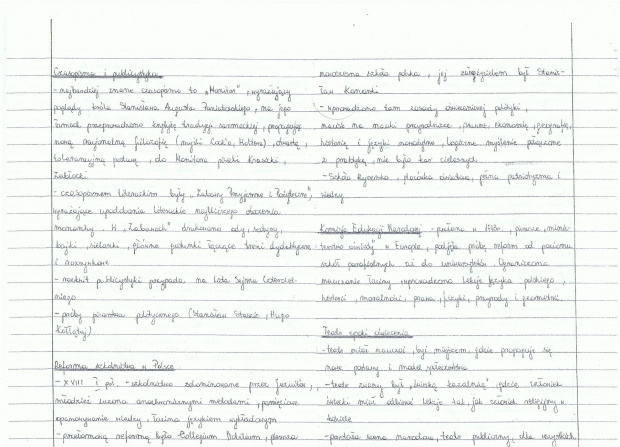 Czasopisma i publicystyka
- najbardziej znane czasopismo to „Monitor", wyrażający
poglądy króla Stanisława Augusta Poniatowskiego, na jego
łamach przeprowadzono krytykę tradycji sarmackiej, propagując
nową racjonalną filozofię (myśli Locke'a, Hobbesa), otwartą,
tolerancyjną postawę, do Monitora pisali Krasicki,
Zabłocki
- czasopismem literackim były „Zabawy Przyjemne i Pożyteczne",
wyrażające upodobania literackie najbliższego otoczenia
monarchy. W „Zabawach" drukowano ody, satyry,
bajki, sielanki, gatunki łączące treści dydaktyczne
i rozrywkowe
- rozkwit publicystyki przypada na lata Sejmu Czterolet-
niego
- próby pisarstwa politycznego (Stanisław Staszic, Hugo
Kołłątaj)
Reforma szkolnictwa w Polsce
- XVIII I poł. - szkolnictwo zdominowane przez Jezuitów,
młodzież uczona anachronicznymi metodami, pamięciowe
opanowywanie wiedzy, łacina językiem wykładowym
- przełomową reformą było Collegium Nobilium, pierwsza
nowoczesna szkoła polska, jej założycielem był Stanis-
ław Konarski
- wprowadzono tam zasady oświeconej polityki,
nacisk na nauki przyrodnicze, prawne, ekonomię, geografię,
historię i języki nowożytne, logiczne myślenie połączone
z praktyką, nie było kar cielesnych
- Szkoła Rycerska, placówka oświatowa, pełna patriotyzmu i
wiedzy
Komisja Edukacji Narodowej - pierwsze „minis-
terstwo oświaty" w Europie, podjęła próbę reform od poziomu
szkół parafialnych aż do uniwersytetów. Ograniczono
nauczanie łaciny, wprowadzono lekcje języka polskiego,
historii, moralności, prawa, fizyki, przyrody i geometrii.
Teatr epoki oświecenia
- teatr miał nauczać, być miejscem, gdzie propaguje się
nowe postawy i model
- teatr zwany był „świecką kazalnicą", gdzie człowiek
świecki miał odbierać lekcje tak, jak człowiek religijny w
kościele
- powstała scena narodowa, teatr publiczny, dla wszystkich